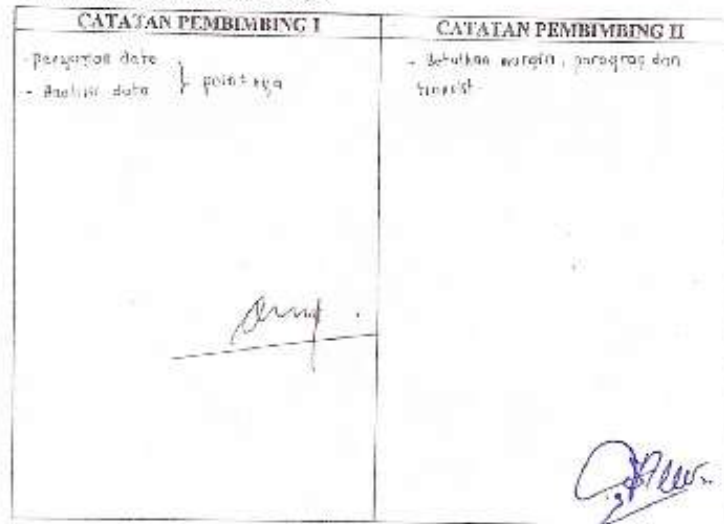 CATATAN PEMBIMBING I
CATATAN PEMBIMBING II
data
- Analisis data } pointnya
- Betulkan margin, paragrap dan